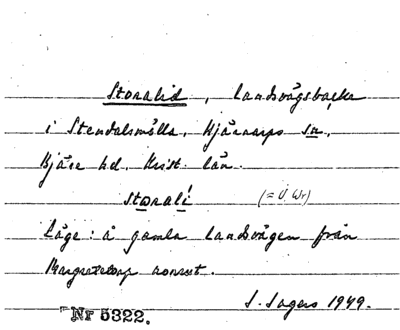 Storalid, landsvägsbacke
i Stendalsmölla, Hjärnarps sn,
Bjäre hd, Krist. län.
storalí
Läge: å gamla landsvägen från
Margretetorp norrut.
S. Sagers 1949.
Nr 5322.